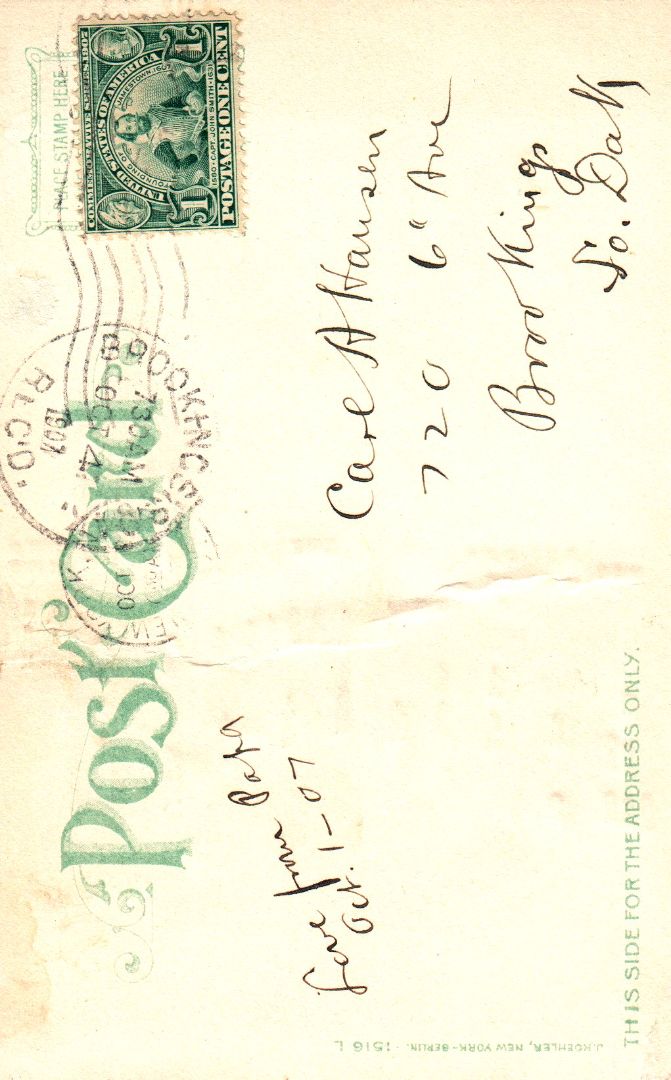 Post Card
PLACE STAMP HERE
COMMEMORATIVE SERIES 1907
UNITED STATES OF AMERICA
FOUNDING OF JAMESTOWN 1607
1580 · CAPT. JOHN SMITH · 1631
1 1
POSTAGE ONE CENT
BROOKINGS
OCT 4
730AM
1907
REC'D.
NEW YORK
OCT
Love from Papa
Oct. 1-07
Carl A Hansen
720 6" Ave
Brookings
So. Dak
THIS SIDE FOR THE ADDRESS ONLY.
J. KOEHLER, NEW YORK-BERLIN. - 1516 L